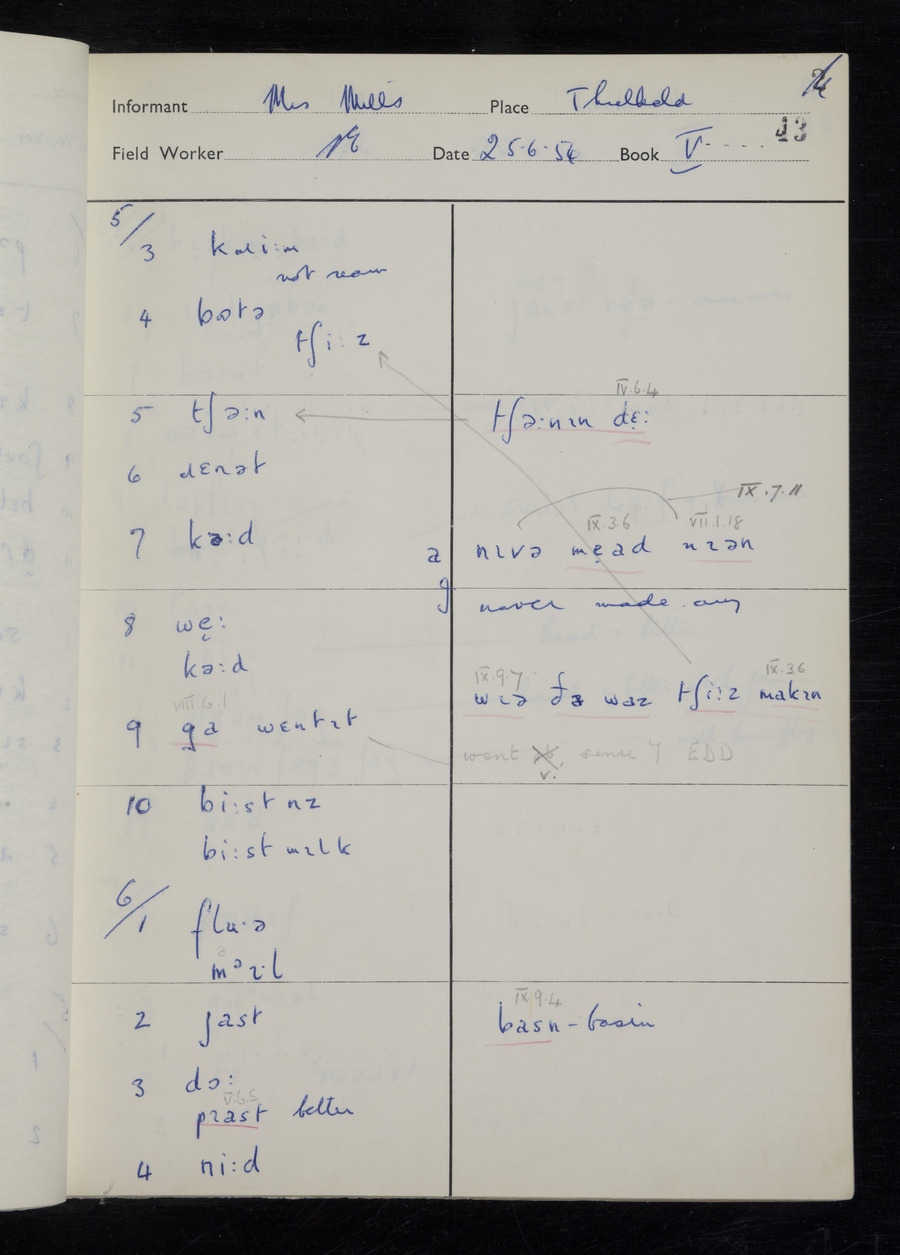 Informant Mrs Mills Place Threlkeld
Field Worker Date 25.6.54 Book V 43
5/3 kɹi:m
not ream
4 bʊtə
tʃi:z
IV.6.4
5 tʃə:n tʃə:nɪn dɛ̣:
6 dɛɹət
IX.7.11
IX.3.6 VII.1.18
7 kə:d a nɪvə mẹad nɪən
never made any
8 wẹ:
kə:d
IX.9.7 IX.3.6
wɪə ðə waz tʃi:z makɪn
VIII.6.1
9 ga wɛntɪt
want sb, sense 7 EDD
v.
10 bi:stnz
bi:st mɪlk
6/1 flu·ə
ə
mᵊɪ·l
IX 9.4
2 jast basn - basin
3 dɔ:
V.6.5
pɹast better
4 ni:d